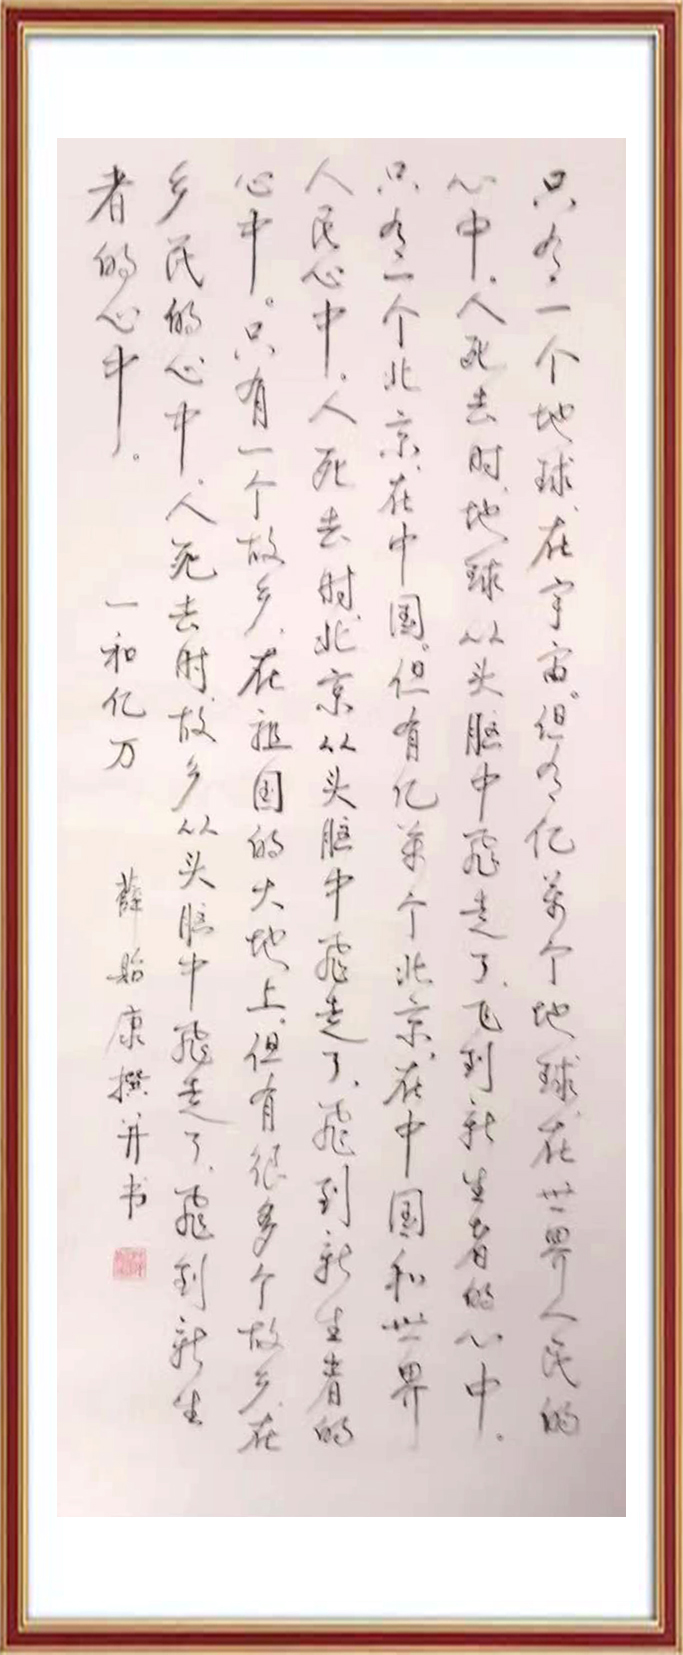 只有一个地球，在宇宙。但有亿万个地球，在世界人民的
心中。人死去时，地球从头脑中飞走了，飞到新生者的心中。
只有一个北京，在中国。但有亿万个北京，在中国和世界
人民心中。人死去时，北京从头脑中飞走了，飞到新生者的
心中。只有一个故乡，在祖国的大地上。但有很多个故乡，在
乡民的心中。人死去时，故乡从头脑中飞走了，飞到新生
者的心中。
一和亿万
薛贻康撰并书